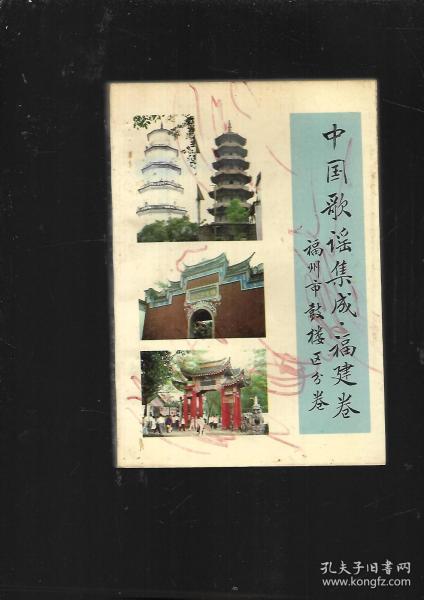 中国歌谣集成·福建卷
福州市鼓楼区分卷
孔夫子旧书网
www.kongfz.com